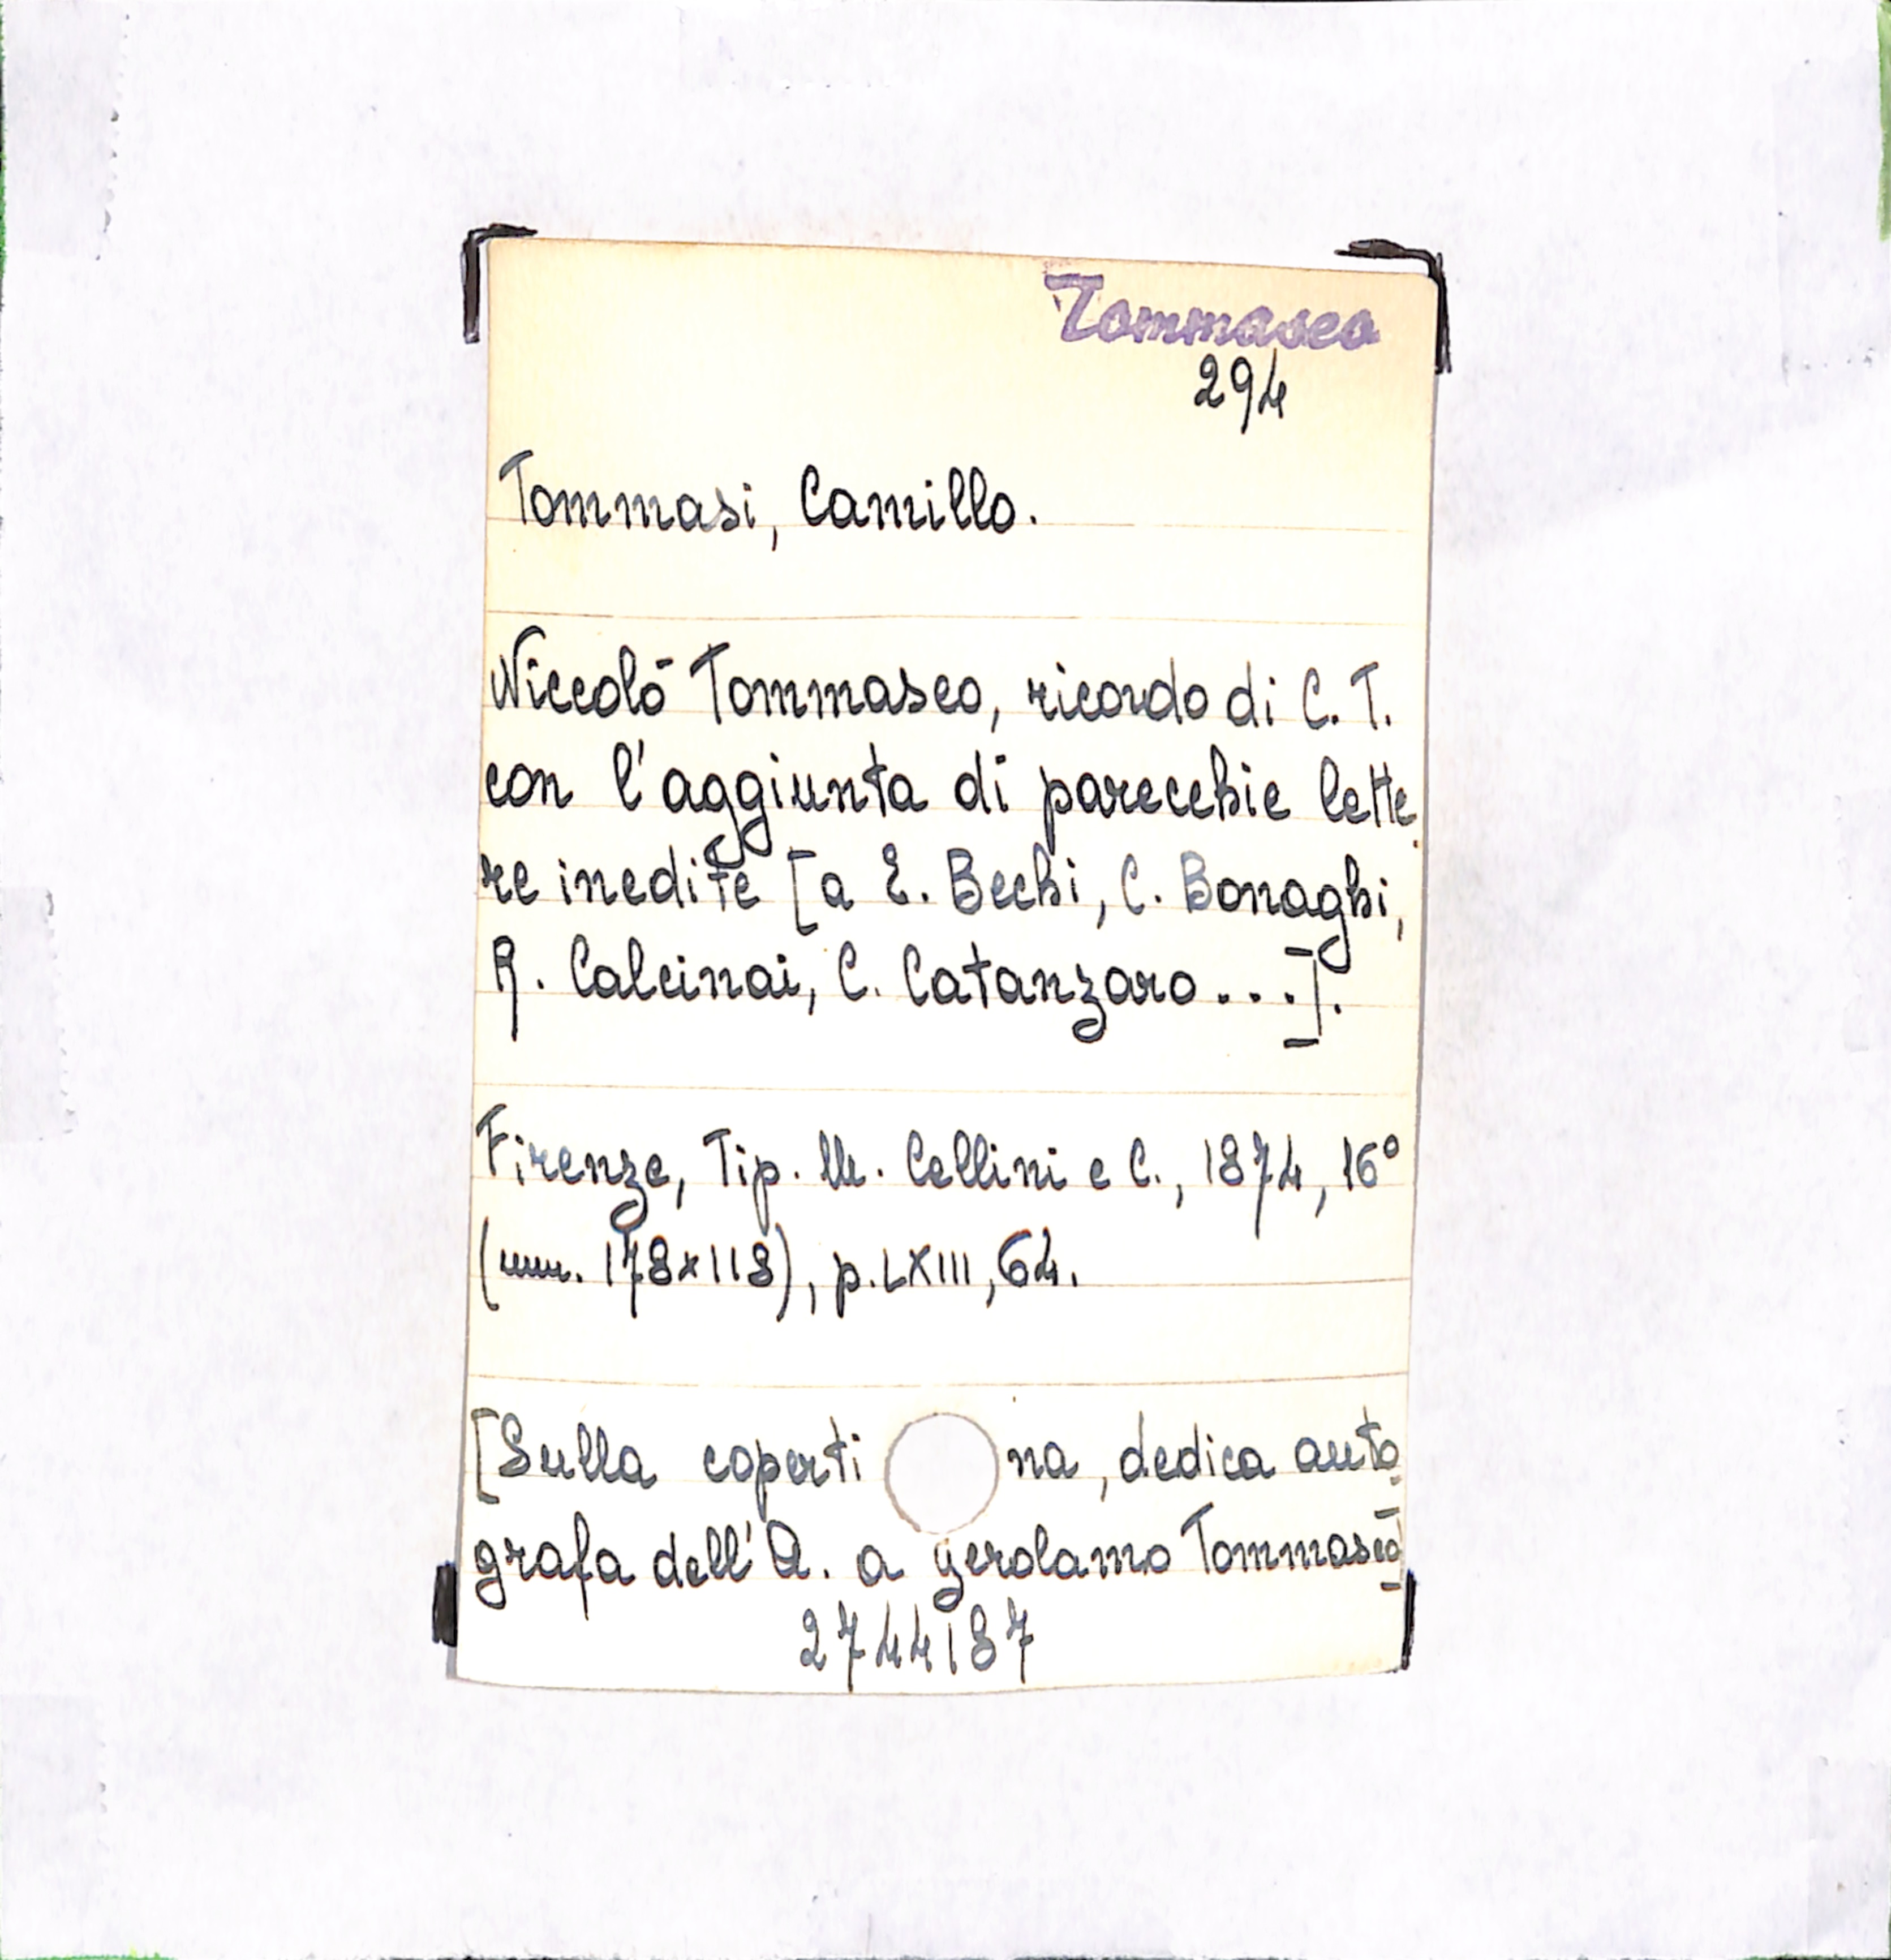 Tommaseo
294
Tommasi, Camillo.
Niccolò Tommaseo, ricordo di C. T.
con l'aggiunta di parecchie lette
re inedite [a E. Bechi, C. Bonaghi,
R. Calcinai, C. Catanzaro ...].
Firenze, Tip. M. Cellini e C., 1874, 16°
(mm. 178x118), p. LXIII, 64.
[Sulla coperti na, dedica auto
grafa dell'A. a Gerolamo Tommaseo]
2744187